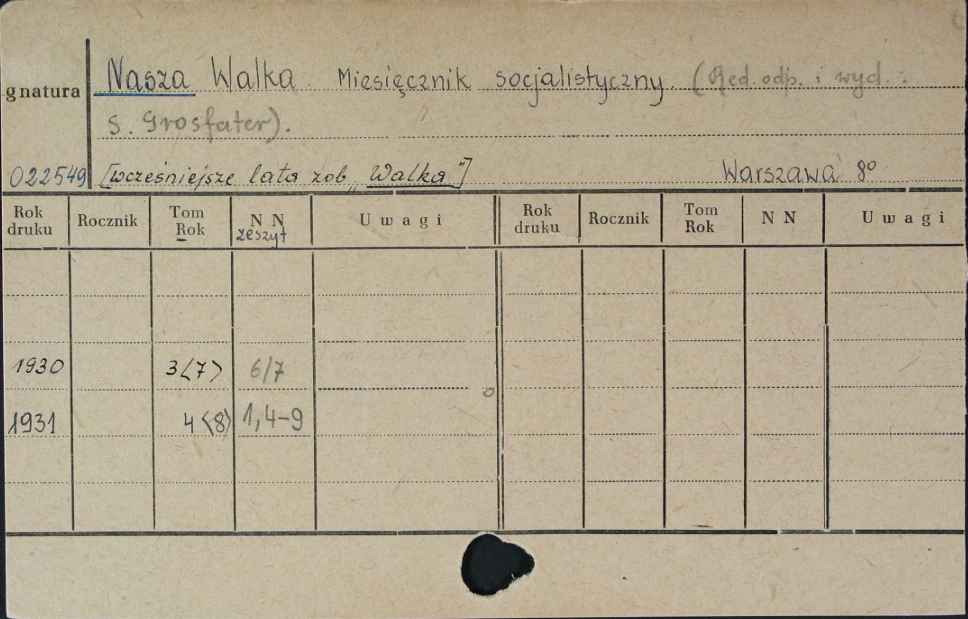 Nasza Walka. Miesięcznik socjalistyczny (Red. odp. i wyd.:
gnatura
S. Grosfater).
022549 [wcześniejsze lata zob. „Walka"] Warszawa 8°
Rok druku Rocznik Tom Rok N N zeszyt Uwagi Rok druku Rocznik Tom Rok N N Uwagi
1930 3<7> 6/7
1931 4<8> 1,4-9